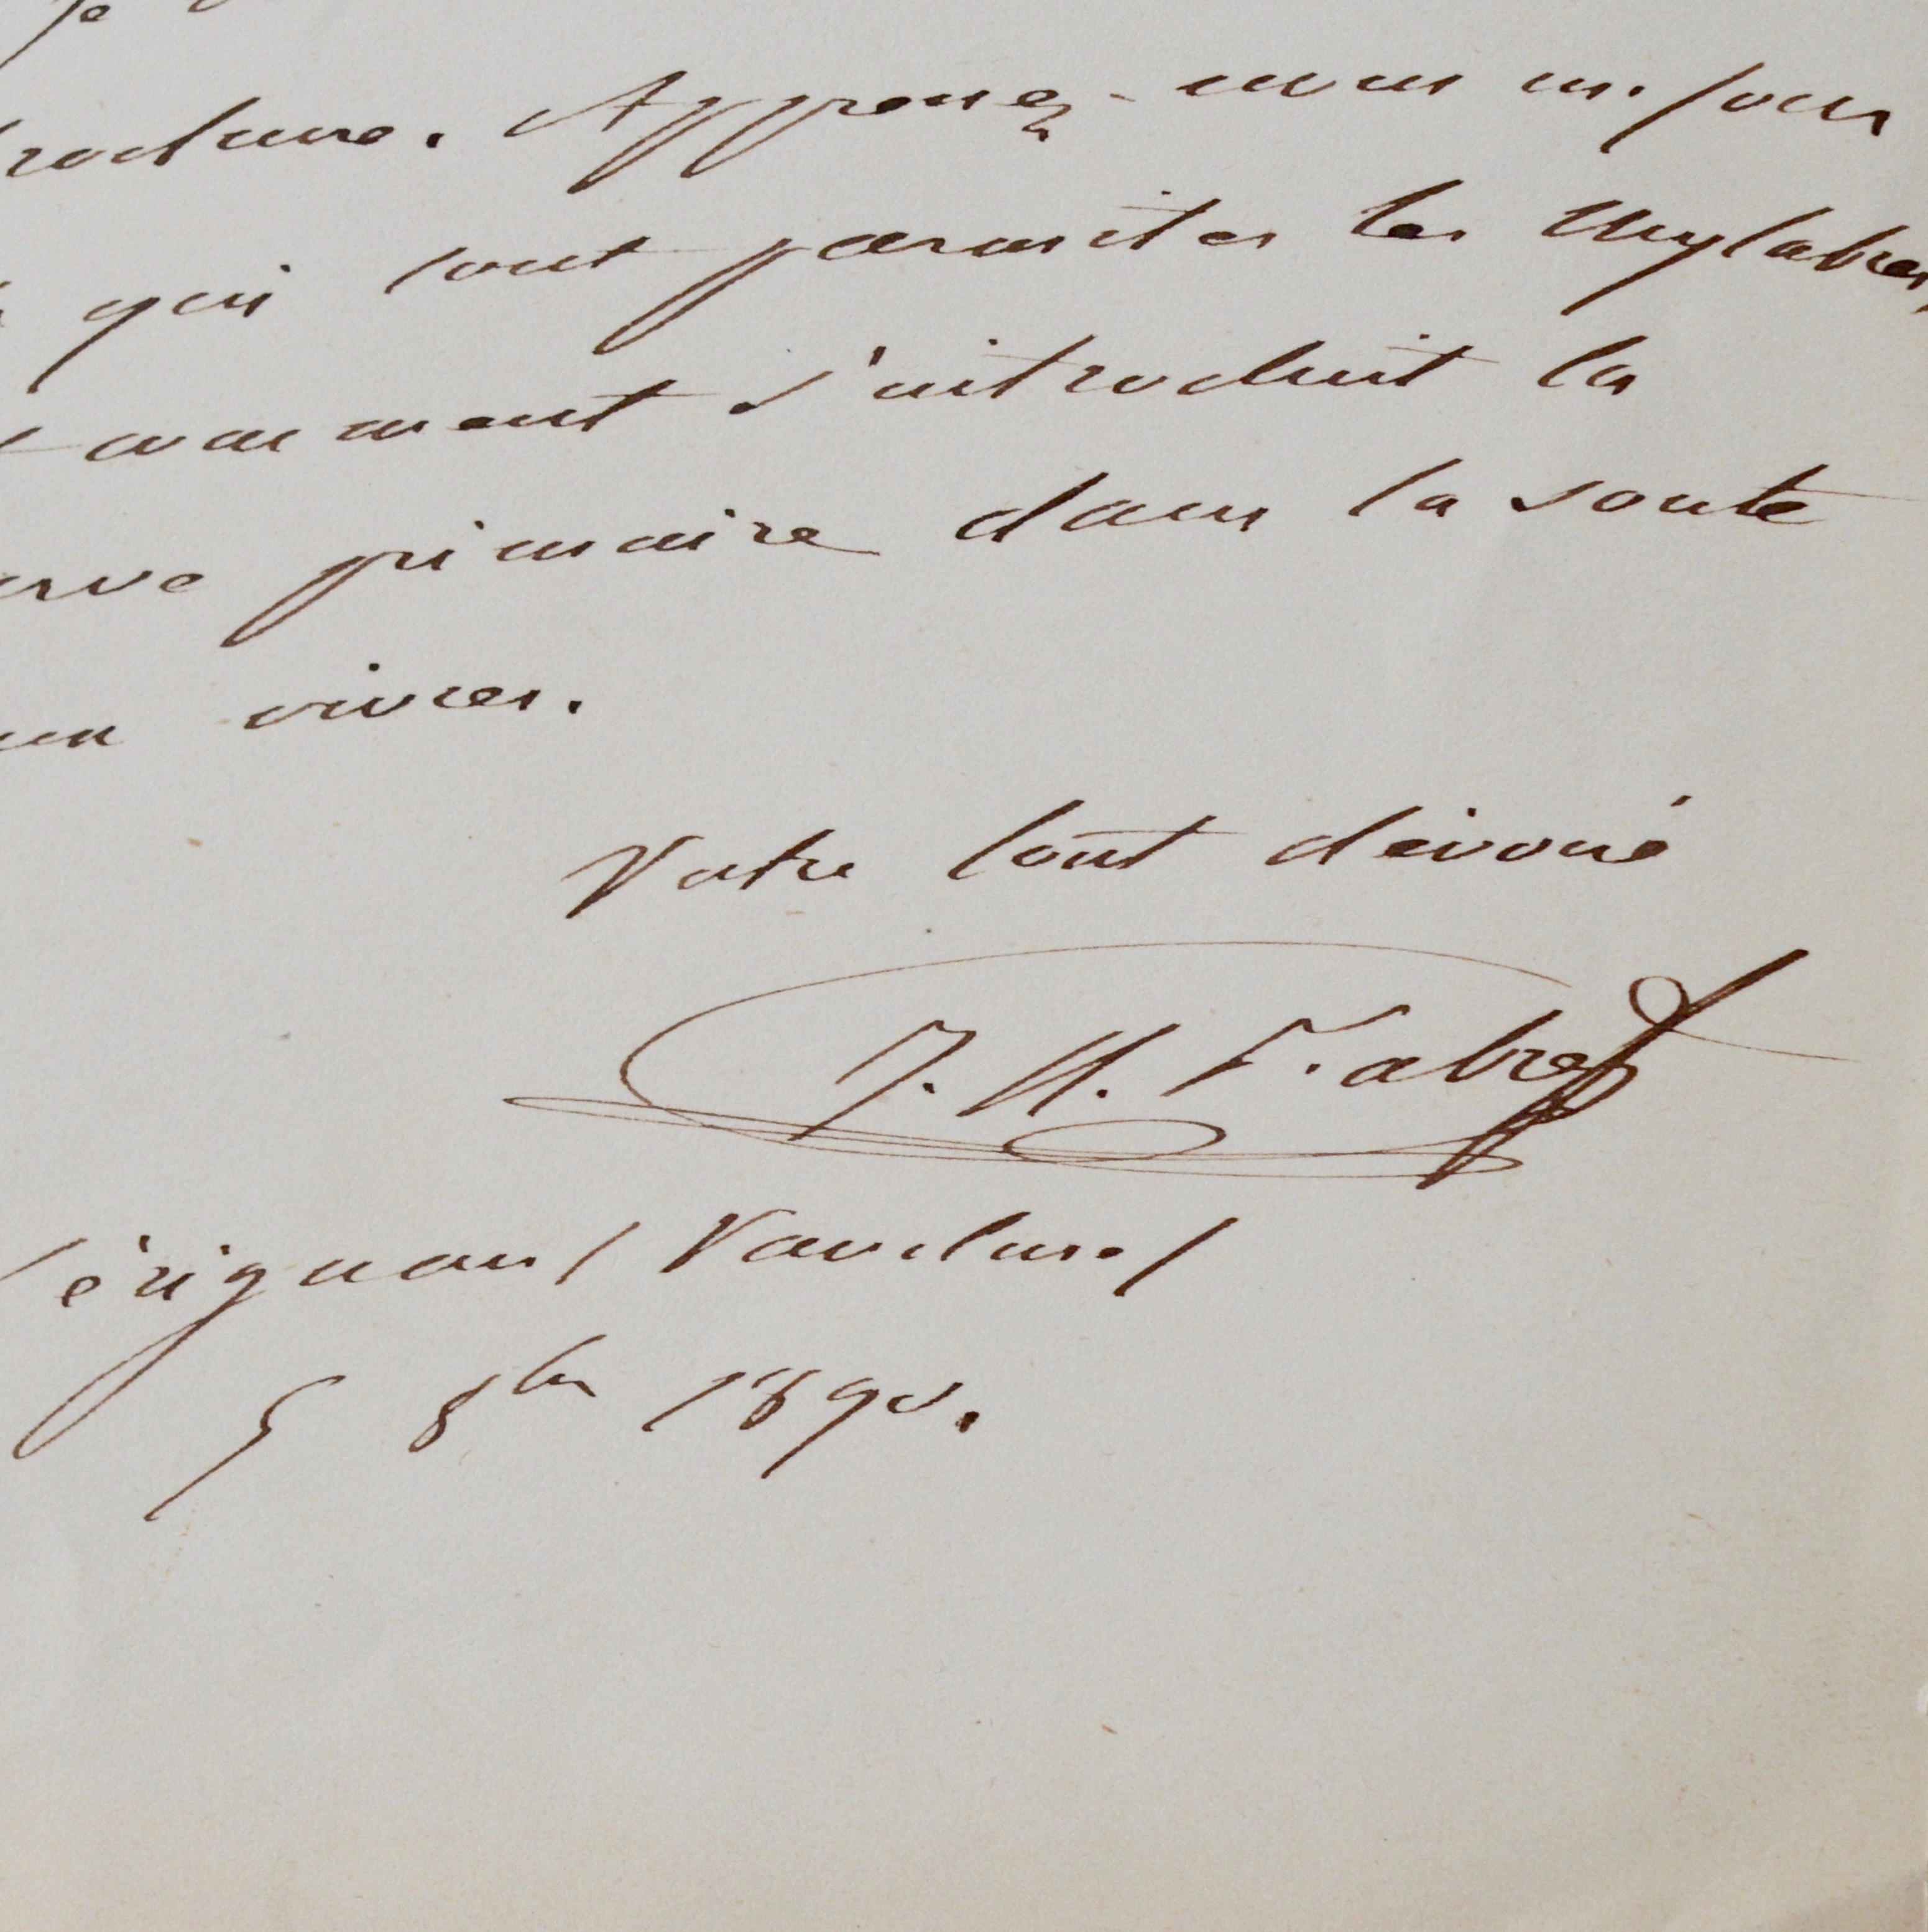 je
brochure. Apprenez-nous un jour
qui sont parasites les Mylabres,
comment s'introduit la
larve primaire dans la soute
aux vivres.
Votre tout dévoué
J. H. Fabre
Sérignan (Vaucluse)
5 8bre 1890.